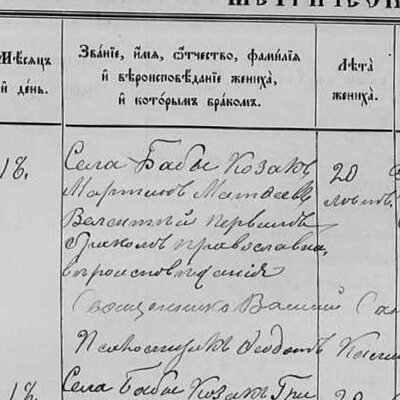 Мѣсяцъ
и день.
Званїе, имя, отчество, фамилїя
и вѣроисповѣданїе жениха,
и которымъ бракомъ.
Лѣта
жениха.
18.
Села Бабы Козакъ
20
Мартинъ Матвеевъ
лѣтъ.
первымъ
бракомъ православна,
вѣроисповѣданія
Священникъ Василий
Псаломщикъ Ѳеодотъ
18.
Села Бабы Козакъ Гри
20